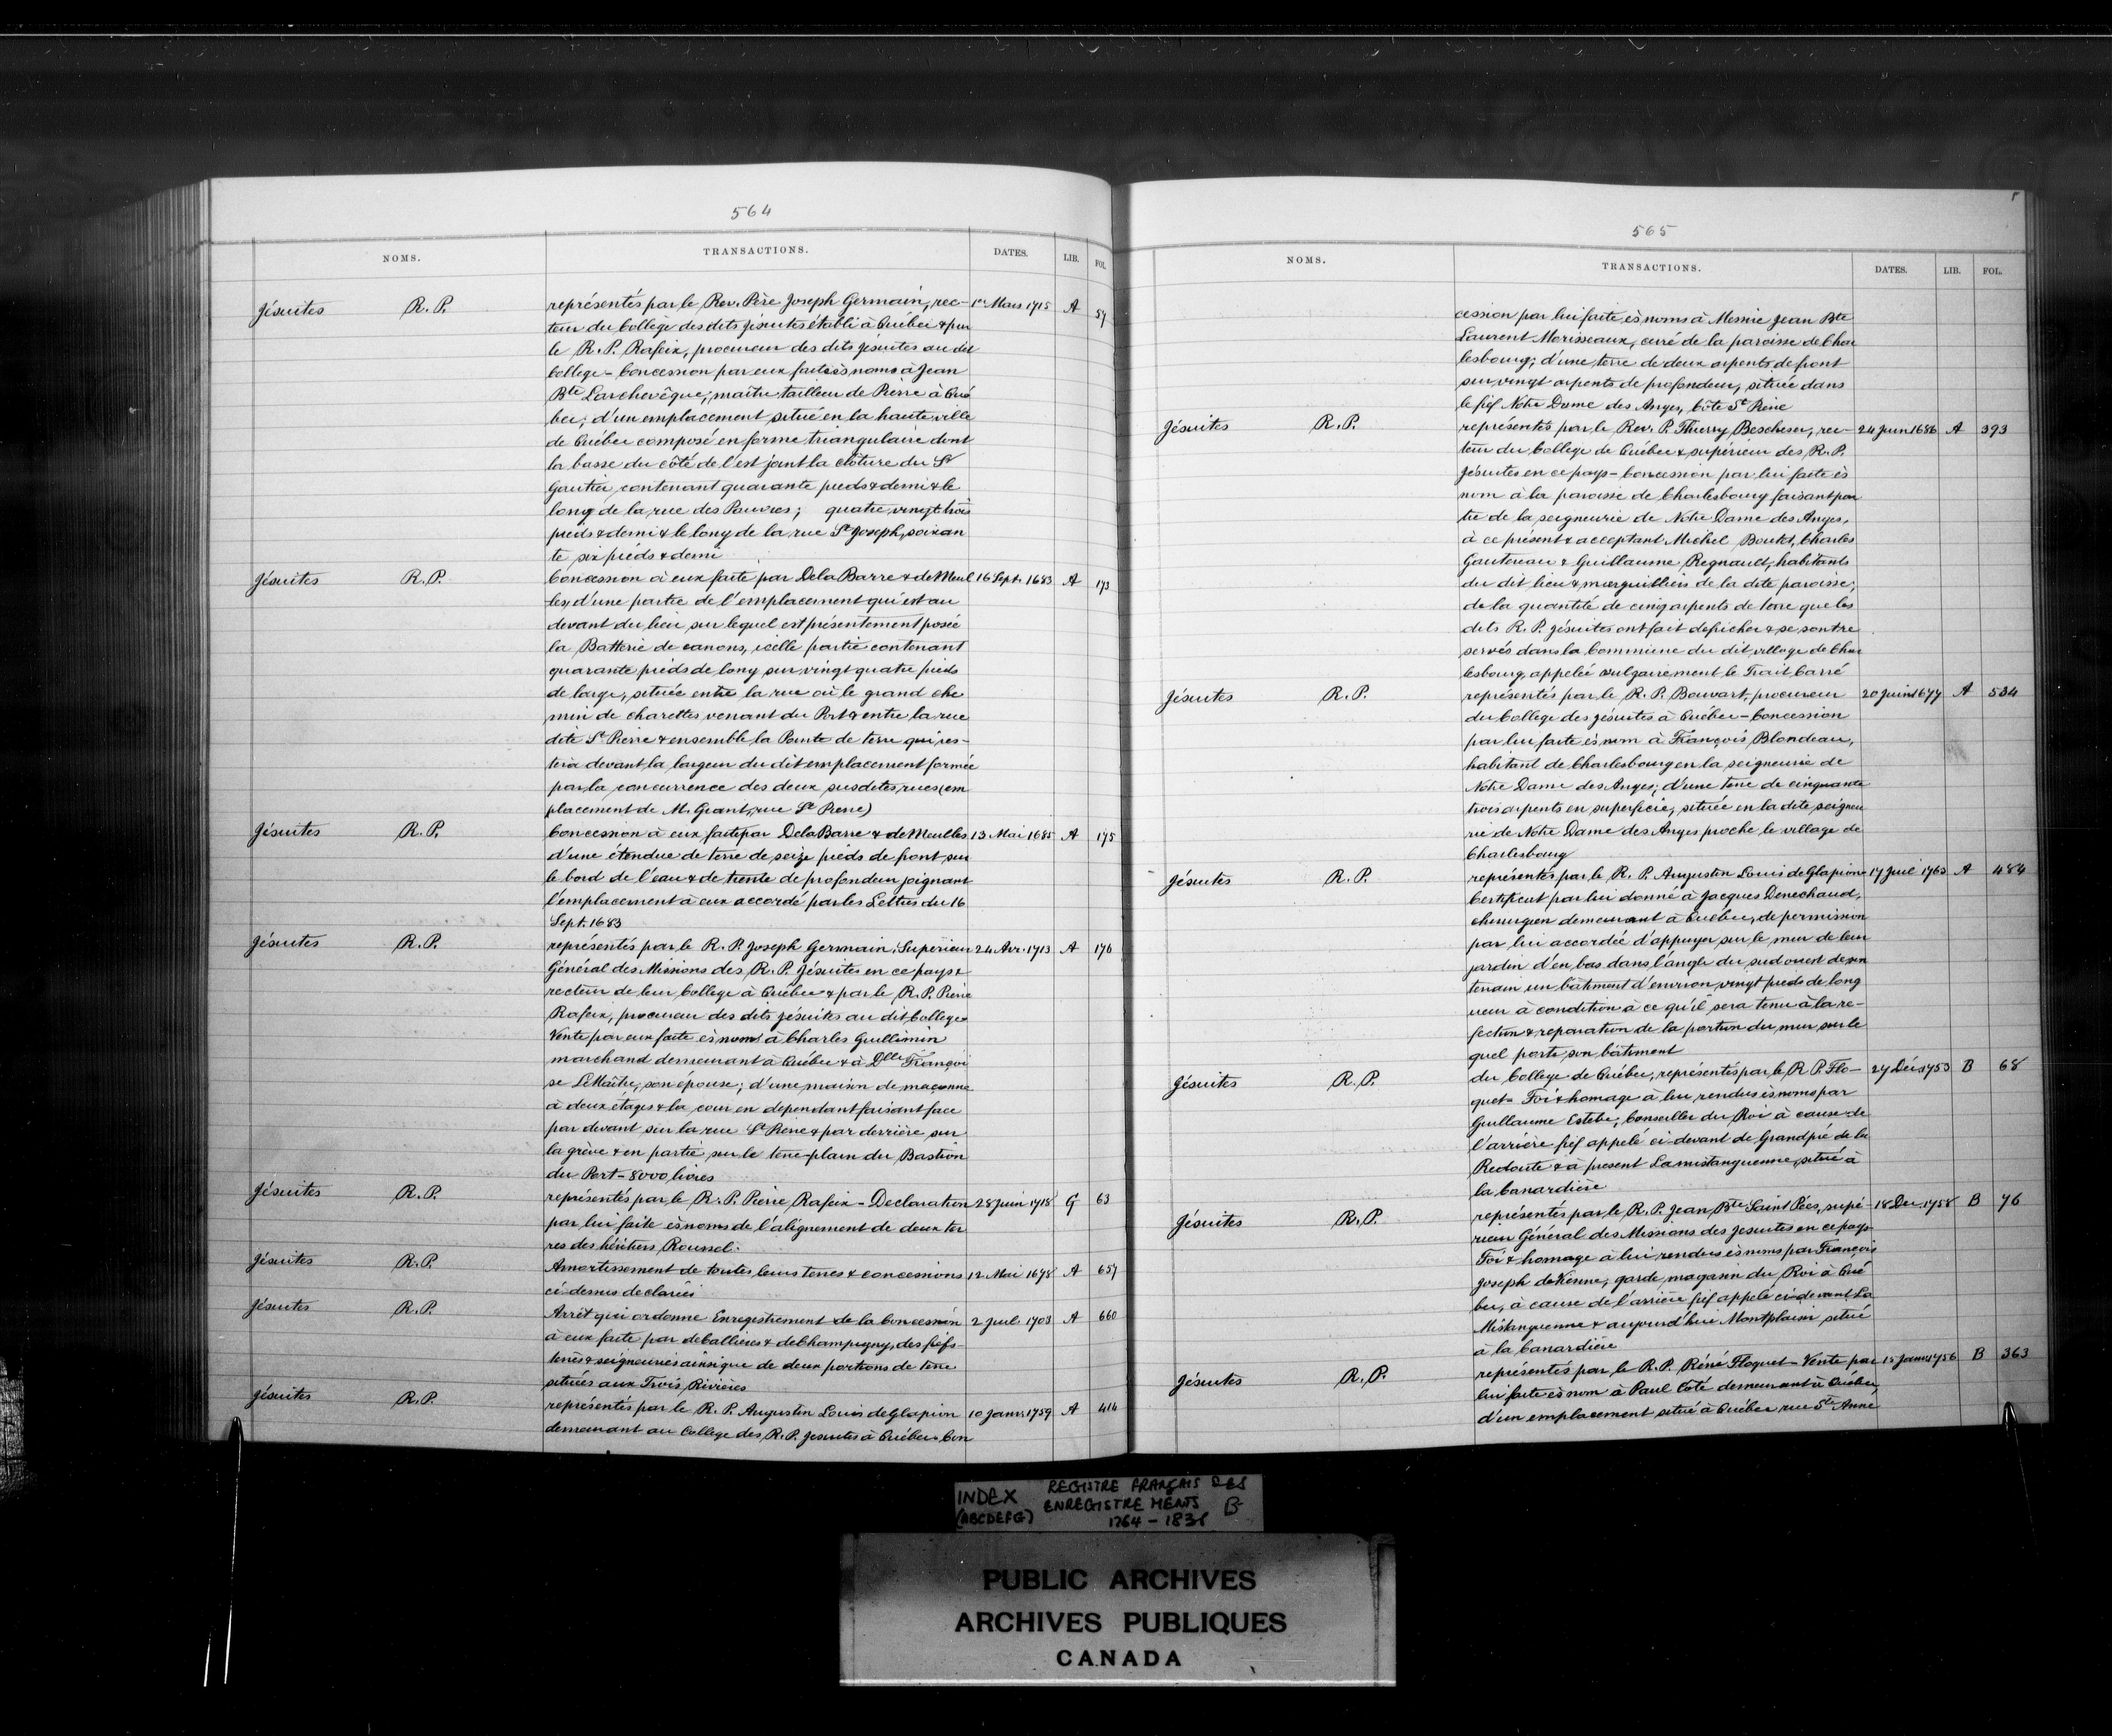 564
NOMS. TRANSACTIONS. DATES. LIB. FOL.
Jésuites R. P. représentés par le Rev. Père Joseph Germain, rec- 1er Mars 1715 A 57
teur du Collège des dits Jésuites établi à Québec & par
le R. P. Rafeix, procureur des dits Jésuites au dit
College - Concession par eux faite ès noms à Jean
Bte Larchevêque, maître tailleur de Pierre à Qué
bec; d'un emplacement situé en la haute ville
de Québec composé en forme triangulaire dont
la basse du côté de l'est joint la clôture du Sr
Gautier contenant quarante pieds & demi & le
long de la rue des Pauvres; quatre vingt trois
pieds & demi & le long de la rue St Joseph, soixan
te six pieds & demi
Jésuites R. P. Concession à eux faite par De la Barre & de Meul 16 Sept. 1683 A 173
les, d'une partie de l'emplacement qui est au
devant du lieu sur lequel est présentement posée
la Batterie de canons, icelle partie contenant
quarante pieds de long sur vingt quatre pieds
de large, située entre la rue où le grand che
min de charettes venant du Port & entre la rue
dite St Pierre & ensemble la Pointe de terre qui res-
tera devant la largeur du dit emplacement formée
par la concurrence des deux susdites rues (em
placement de M. Grant, rue St Pierre)
Jésuites R. P. Concession à eux faite par De la Barre & de Meulles 13 Mai 1685 A 175
d'une étendue de terre de seize pieds de front sur
le bord de l'eau & de trente de profondeur joignant
l'emplacement à eux accordé par les Lettres du 16
Sept. 1683
Jésuites R. P. représentés par le R. P. Joseph Germain, Supérieur 24 Avr. 1713 A 176
Général des Missions des R. P. Jésuites en ce pays &
recteur de leur College à Québec & par le R. P. Pierre
Rafeix, procureur des dits Jésuites au dit College
Vente par eux faite ès noms à Charles Guillimin
marchand demeurant à Québec & à Dlle Françoi
se LeMaître, son épouse; d'une maison de maçonne
à deux étages & la cour en dependant faisant face
par devant sur la rue St Pierre & par derrière sur
la grève & en partie sur le terre-plain du Bastion
du Port - 8000 livres
Jésuites R. P. représentés par le R. P. Pierre Rafeix - Declaration 28 Juin 1718 G 63
par lui faite ès noms de l'alignement de deux ter
res des héritiers Roussel.
Jésuites R. P. Amortissement de toutes leurs terres & concessions 12 Mai 1678 A 657
ci-dessus declarées
Jésuites R. P. Arrêt qui ordonne Enregistrement de la Concession 2 Juil. 1703 A 660
à eux faite par de Callières & de Champigny, des fiefs
terres & seigneuries ainsi que de deux portions de terre
situées aux Trois Rivières
Jésuites R. P. représentés par le R. P. Augustin Louis de Glapion 10 Janv. 1759 A 414
demeurant au College des R. P. Jésuites à Québec - Con
565
NOMS. TRANSACTIONS. DATES. LIB. FOL.
cession par lui faite ès noms à Messire Jean Bte
Laurent Morisseaux, curé de la paroisse de Char
lesbourg; d'une terre de deux arpents de front
sur vingt arpents de profondeur, située dans
le fief Notre Dame des Anges, Côte St Pierre
Jésuites R. P. représentés par le Rev. P. Thierry Bescheser, rec- 24 Juin 1686 A 393
teur du College de Québec & supérieur des R. P.
Jésuites en ce pays - Concession par lui faite ès
nom à la paroisse de Charlesbourg faisant par
tie de la seigneurie de Notre Dame des Anges,
à ce présent & acceptant Michel Boutet, Charles
Gautereau & Guillaume Regnault, habitants
du dit lieu & marguilliers de la dite paroisse;
de la quantité de cinq arpents de terre que les
dits R. P. Jésuites ont fait defricher & se sont re
servés dans la Commune du dit village de Char
lesbourg appelée vulgairement le Trait Carré
Jésuites R. P. représentés par le R. P. Bouvart, procureur 20 Juin 1677 A 534
du College des Jésuites à Québec - Concession
par lui faite ès nom à François Blondeau,
habitant de Charlesbourg en la seigneurie de
Notre Dame des Anges; d'une terre de cinquante
trois arpents en superficie, située en la dite seigneu
rie de Notre Dame des Anges proche le village de
Charlesbourg
Jésuites R. P. représentés par le R. P. Augustin Louis de Glapion 17 Juil 1763 A 484
Certificat par lui donné à Jacques Denechaud,
chirurgien demeurant à Québec, de permission
par lui accordée d'appuyer sur le mur de leur
jardin d'en bas dans l'angle du sud ouest de son
terrain un bâtiment d'environ vingt pieds de long
ueur à condition à ce qu'il sera tenu à la re-
fection & reparation de la portion du mur sur le
quel porte son bâtiment
Jésuites R. P. du College de Québec, représentés par le R. P. Flo- 27 Déc. 1753 B 68
quet - Foi & homage à lui rendus ès noms par
Guillaume Estebe, Conseiller du Roi à cause de
l'arrière fief appelé ci-devant de Grandpré de la
Redoute & à présent Lamistanguenne, situé à
la Canardière
Jésuites R. P. représentés par le R. P. Jean Bte Saint Pées, supé- 18 Dec. 1758 B 76
rieur Général des Missions des Jesuites en ce pays
Foi & homage à lui rendus ès noms par François
Joseph de Vienne, garde magasin du Roi à Qué
bec, à cause de l'arrière fief appelé ci-devant La
Mistanguenne & aujourd'hui Montplaisir situé
à la Canardière
Jésuites R. P. représentés par le R. P. Réné Floquet - Vente par 15 Janv. 1756 B 363
lui faite ès nom à Paul Côté demeurant à Québec,
d'un emplacement situé à Québec rue Ste Anne
INDEX (ABCDEFG) REGISTRE FRANÇAIS DES
ENREGISTREMENTS B
1764 - 1838
PUBLIC ARCHIVES
ARCHIVES PUBLIQUES
CANADA